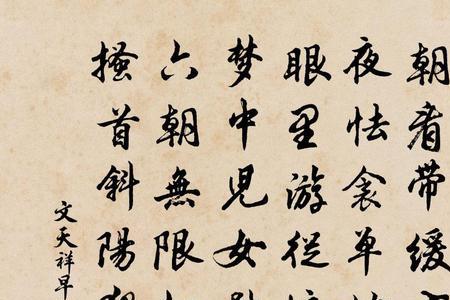 朝看带缓
夜怯衾单
眼里游從
梦中児女
六朝無限
搔首斜陽
文天祥早